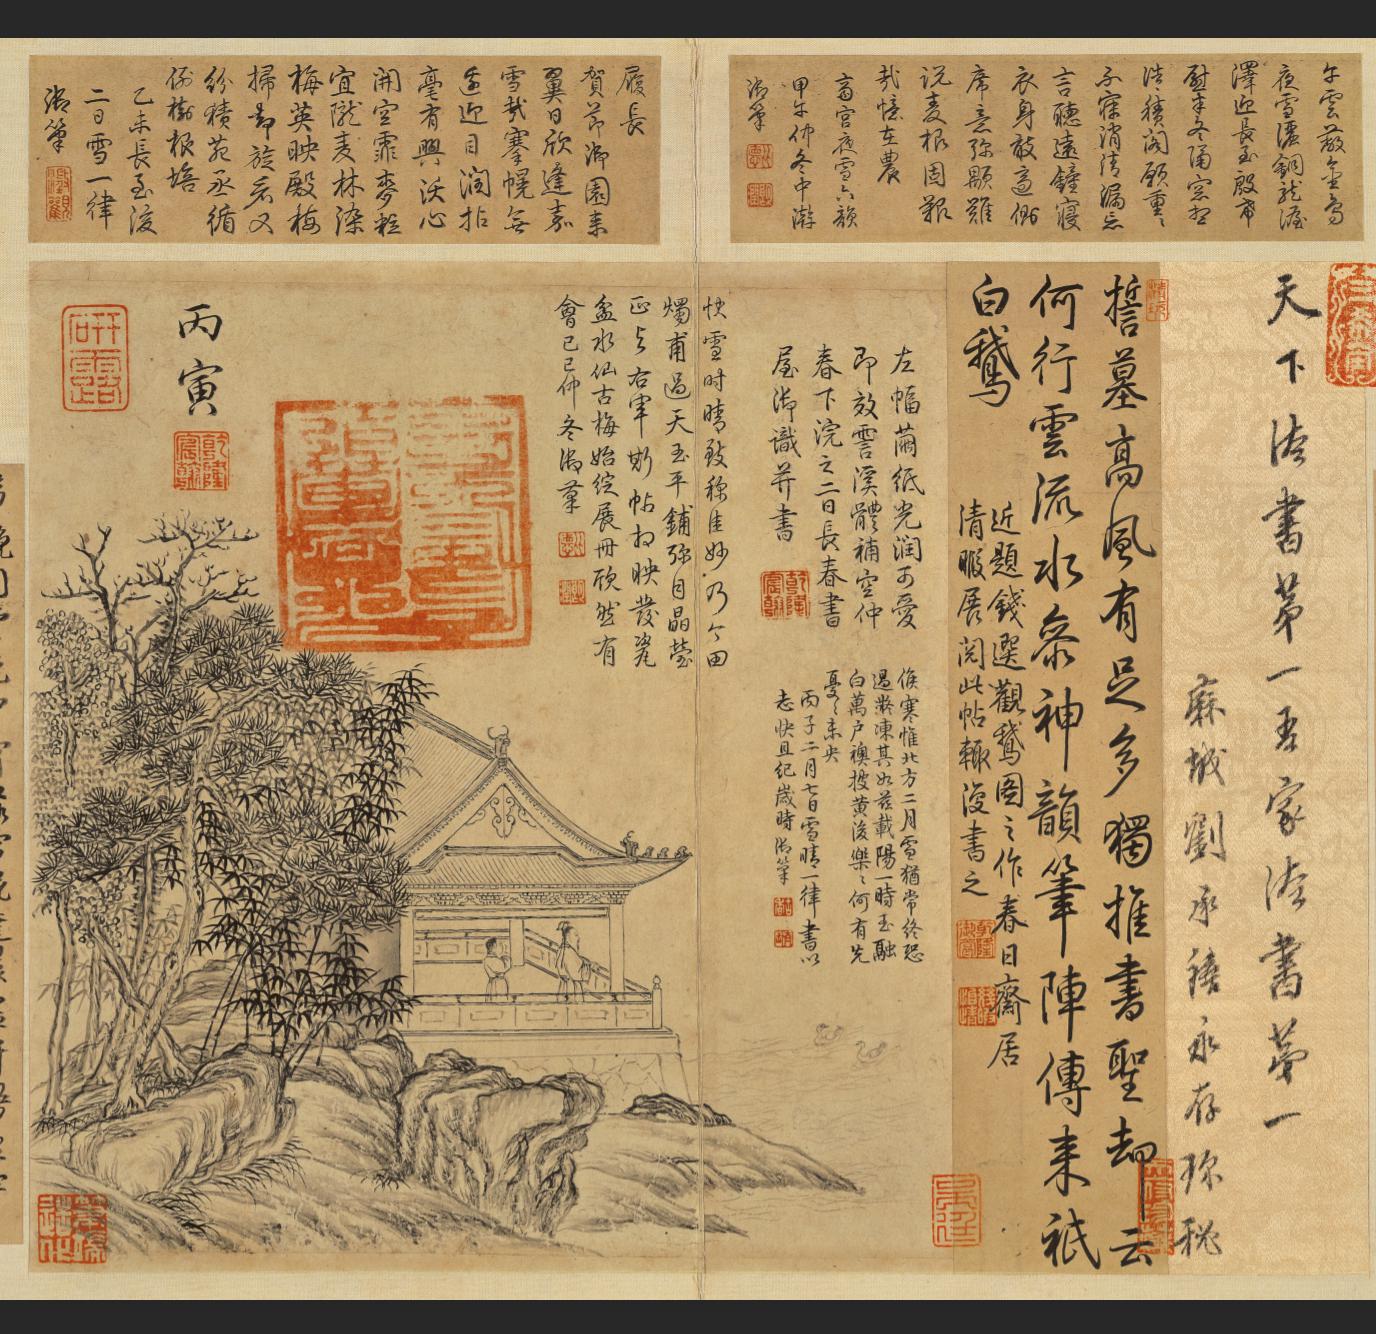 天下法書第一吾家法書第一
麻城劉承禧永存珎秘
誓墓高風有足多獨推書聖却云
何行雲流水參神韻筆陣傳來祇
白鵝
近題錢選觀鵝圖之作春日齋居
清暇展閱此帖輒復書之
左幅繭紙光潤可愛
即效雲溪體補空仲
春下浣之二日長春書
屋御識并書
乾隆宸翰
候寒惟北方二月雪猶常終恐
過嚴凍其如茲載陽一時玉融
白萬戶襖披黃後樂何有先
憂未央
丙子二月七日雪晴一律書以
志快且紀歲時御筆
快雪时晴致稱佳妙乃今田
燭甫過天玉平鋪弥目晶瑩
正与右軍斯帖相映發瓷
盆水仙古梅始綻展冊欣然有
會己巳仲冬御筆
丙寅
乾隆宸翰
夜雪濃銅龍渥
澤迎長至殿常
慰来冬隔窓
浩積閣顧重
不寐消清漏
言聽遠鐘寢
衣身敢適側
席意弥顒雖
说麦根固艱
哉憶在農
齋宮夜雪六韻
甲午仲冬中澣
御筆
履長
賀節御園来
翼日欣逢嘉
雪哉搴幌無
迎目潤拈
毫有興沃心
開空霏麥粒
宜隴麦林染
梅英映殿梅
掃却旋看又
紛積苑丞循
例樹根培
乙未長至後
二日雪一律
御筆